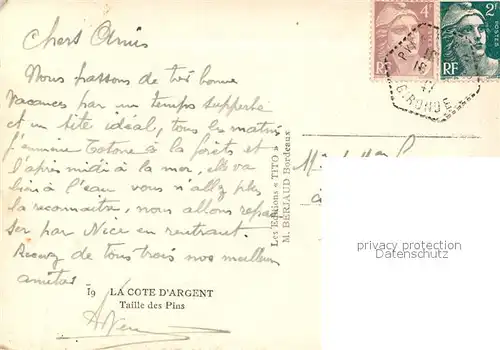 Chers Amis
Nous passons de très bonnes
vacances par un temps superbe
et un site idéal, tous les matins
j'emmène à la forêts et
l'après midi à la mer, elle va
bien à l'eau vous n'allez plus
la reconnaitre, nous allons repas
ser par Nice en rentrant.
Recevez de tous trois nos meilleurs
amities
19 LA COTE D'ARGENT
Taille des Pins
Les Editions « TITO »
M. BERJAUD Bordeaux
4F
RF
2F
RF
POSTES
18
47
GIRONDE
privacy protection
Datenschutz